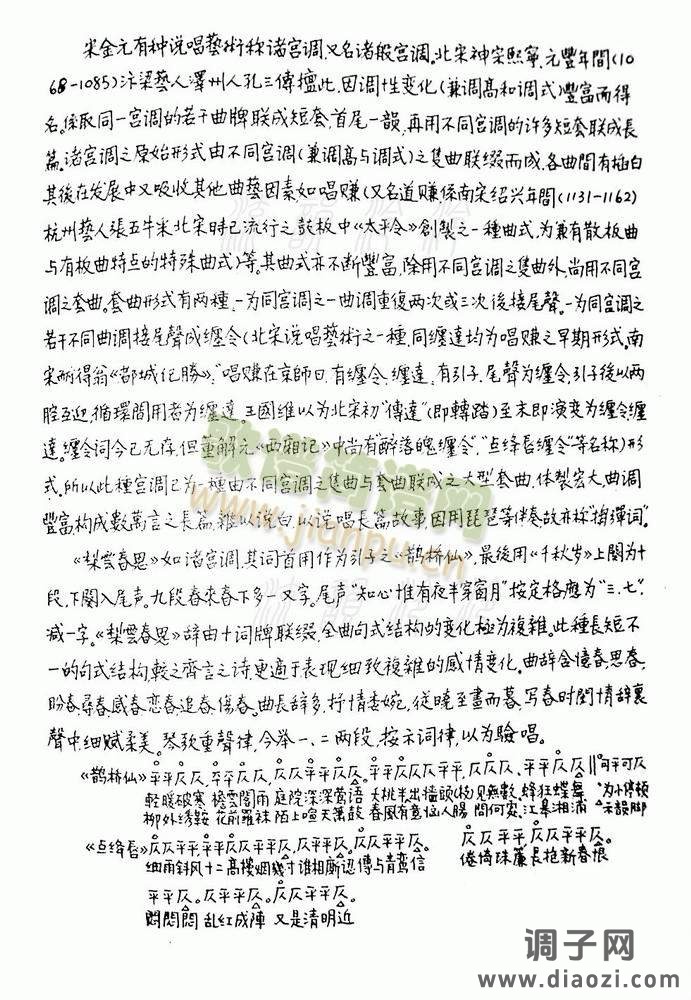 宋金元有种说唱藝術称诸宫调,又名诸般宫调。北宋神宗熙寧、元豐年間(10
68-1085)汴梁藝人澤州人孔三傳擅此,因调性变化(兼调高和调式)豐富而得
名。係取同一宫调的若干曲牌联成短套,首尾一韻,再用不同宫调的许多短套联成長
篇。诸宫调之原始形式由不同宫调(兼调高与调式)之隻曲联缀而成,各曲間有插白
其後在发展中又吸收其他曲藝因素如唱赚(又名道赚係南宋绍兴年間(1131-1162)
杭州藝人張五牛采北宋時已流行之鼓板中《太平令》創製之一種曲式,为兼有散板曲
与有板曲特点的特殊曲式)等。其曲式亦不断豐富,除用不同宫调之隻曲外,尚用不同宫
调之套曲。套曲形式有两種、一为同宫调之一曲调重復两次或三次後接尾聲。一为同宫调之
若干不同曲调接尾聲成缠令(北宋说唱藝術之一種,同缠達均为唱赚之早期形式。南
宋耐得翁《都城纪勝》:"唱赚在京師日,有缠令、缠達、有引子、尾聲为缠令,引子後以两
腔互迎,循環間用者为缠達。王國维以为北宋初"傳達"(即轉踏)至末即演变为缠令缠
達。缠令词今已无存,但董解元《西厢记》中尚有"醉落魄缠令"、"点绛唇缠令"等名称)形
式。所以此種宫调已为一種由不同宫调之隻曲与套曲联成之大型套曲,体製宏大,曲调
豐富,构成數萬言之長篇,雜以说白,以说唱長篇故事因用琵琶等伴奏故亦称"搊彈词"。
《梨雲春思》如诸宫调,其词首用作为引子之《鹊桥仙》,最後用《千秋岁》上闋为十
段,下闋入尾声。九段春來春下多一又字。尾声"知心惟有夜半穿窗月"按定格應为"三、七"、
减一字。《梨雲春思》辞由十词牌联缀,全曲句式结构的变化極为複雜。此種長短不
一的句式结構,較之齊言之诗更適于表现细致複雜的感情变化。曲辞含憶春、思春、
盼春、尋春、感春、恋春、追春、傷春。曲長辞多,抒情委婉,從曉至晝而暮,写春时閨情辞裏
聲中,细赋柔美。琴歌重聲律,今举一、二两段,按示词律,以为驗唱。
《鹊桥仙》平平仄仄、平平仄仄,仄仄平平仄仄。仄平平仄仄平平、仄仄仄、平平仄仄‖可平可仄
輕暖破寒 檐雲閣雨 庭院深深鶯语 夭桃半出墙頭(杪)见無數、蜂狂蝶舞 为小停頓
柳外绣鞍 花前羅袜 陌上喧天箫鼓 春風有意恼人腸 問何寔、江皋湘浦 △示韻脚
《点绛唇》仄仄平平仄平平仄平平仄。仄平平仄。仄仄平平仄。 仄仄平平、仄仄平平仄。
细雨斜风十二高樓烟幾寸谁相厮認傳与青鸞信 倦倚珠簾長抢新春恨
平平仄。仄平平仄。仄仄平平仄。
悶悶悶 乱红成陣 又是清明近
歌谱简谱网
www.jianpu.cn
调子网
www.diaozi.com